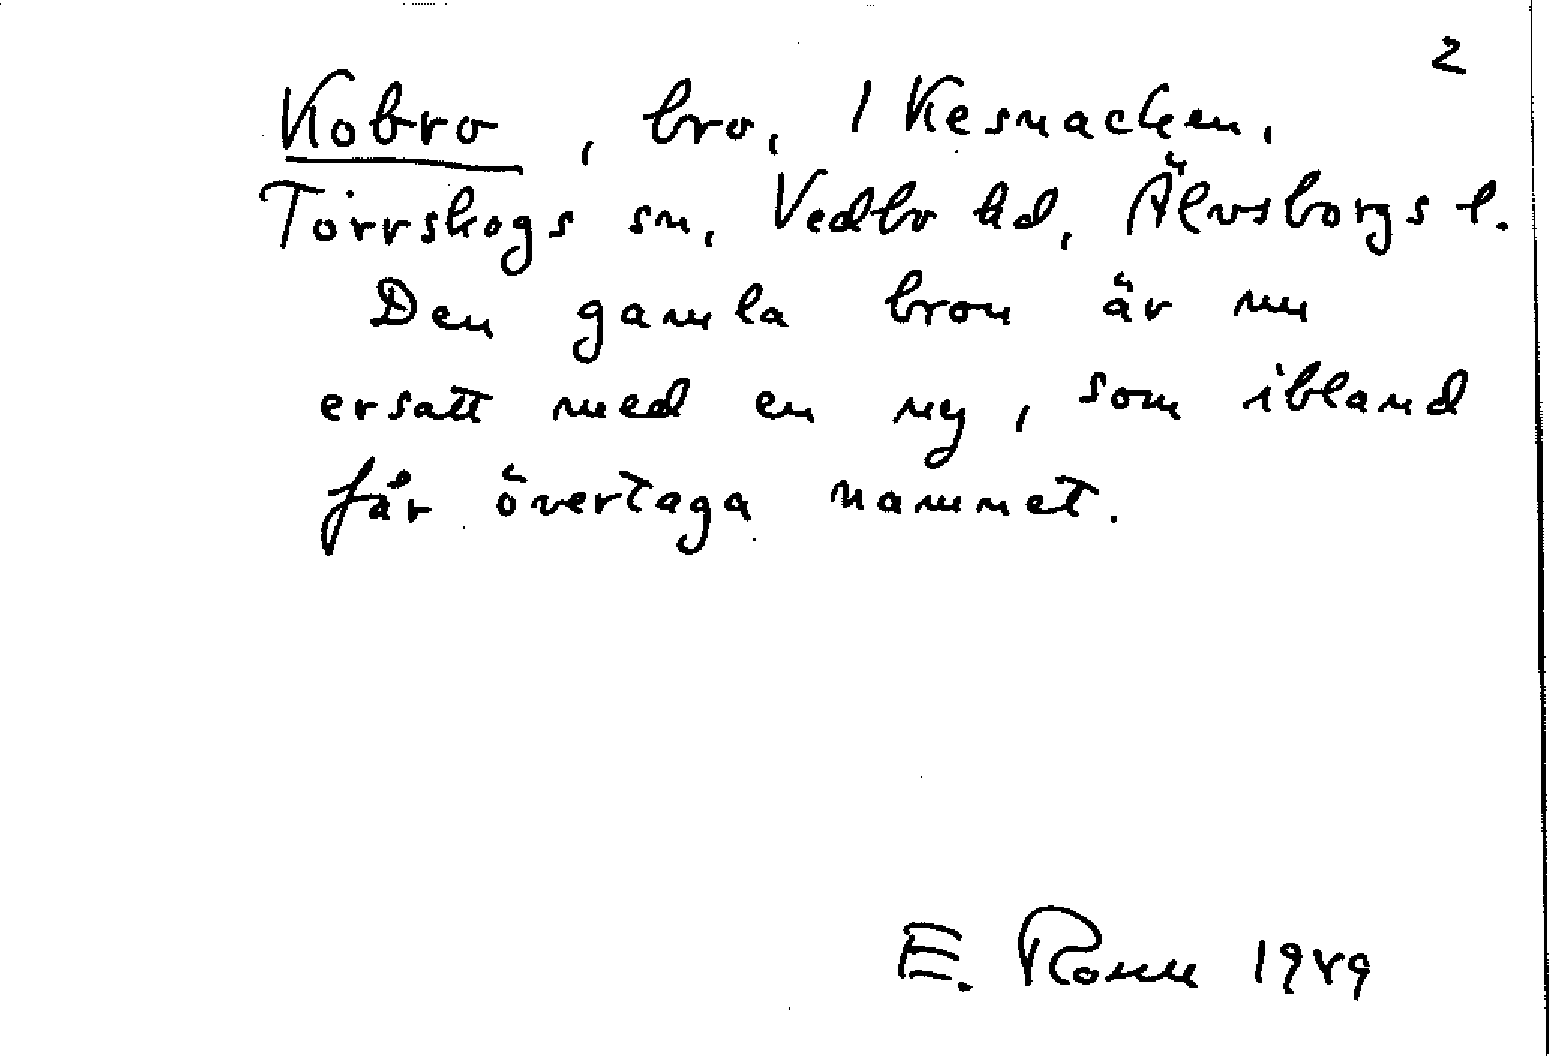 2
Kobro, bro, 1 Kesnacken,
Törrskogs sn, Vedbo hd, Älvsborgs l.
Den gamla bron är nu
ersatt med en ny, som ibland
får övertaga namnet.
E. Rosell 1949